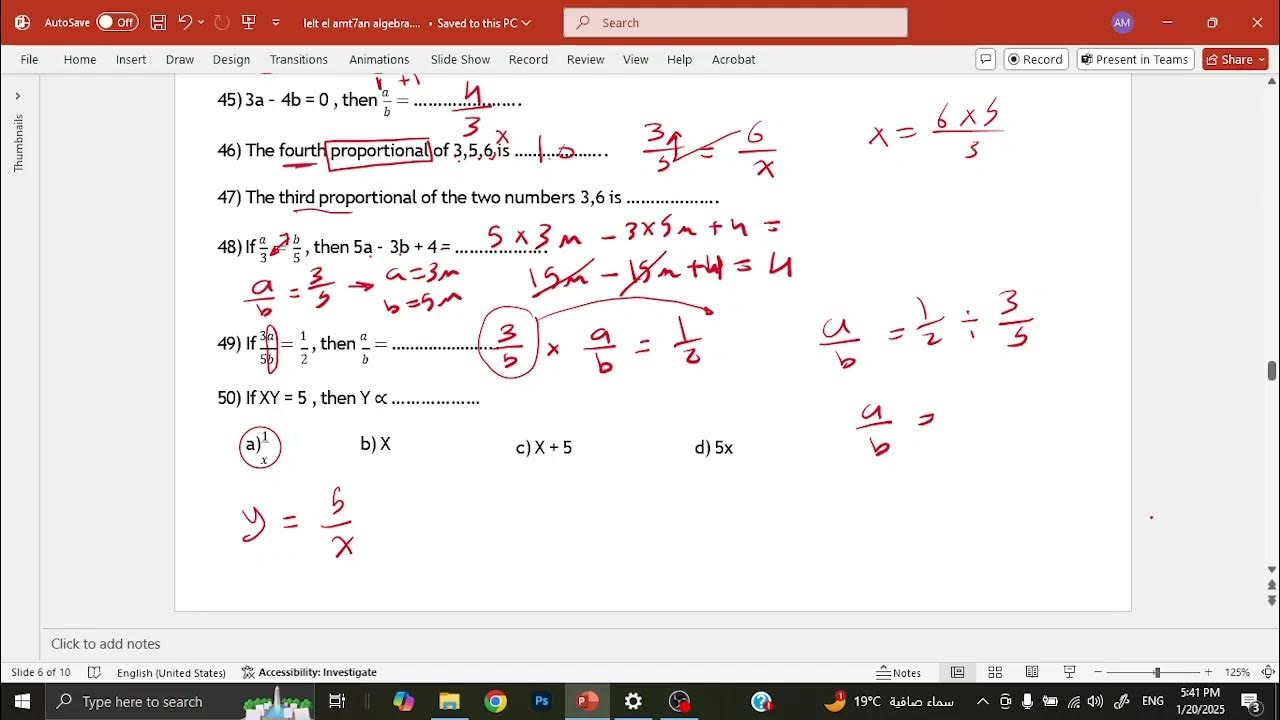 AutoSave Off lelt el amt7an algebra.... • Saved to this PC Search AM
File Home Insert Draw Design Transitions Animations Slide Show Record Review View Help Acrobat Record Present in Teams Share
Thumbnails
45) 3a - 4b = 0 , then a/b = ........................ 4/3
46) The fourth proportional of 3,5,6,x is ..................... 10 3/5 = 6/x x = 6 x 5/3
47) The third proportional of the two numbers 3,6 is ...................
48) If a/3 = b/5 , then 5a - 3b + 4 = ................... 5 x 3m - 3x5m + 4 =
a/b = 3/5 → a = 3m b = 5m 15m - 15m + 4 = 4
49) If 3a/5b = 1/2 , then a/b = ........................ 3/5 x a/b = 1/2 a/b = 1/2 ÷ 3/5
50) If XY = 5 , then Y ∝ ..................
a/b =
a) 1/x b) X c) X + 5 d) 5x
y = 5/x
Click to add notes
Slide 6 of 10 English (United States) Accessibility: Investigate Notes 125%
Type here to search Ps 19°C سماء صافية ENG 5:41 PM 1/20/2025 3